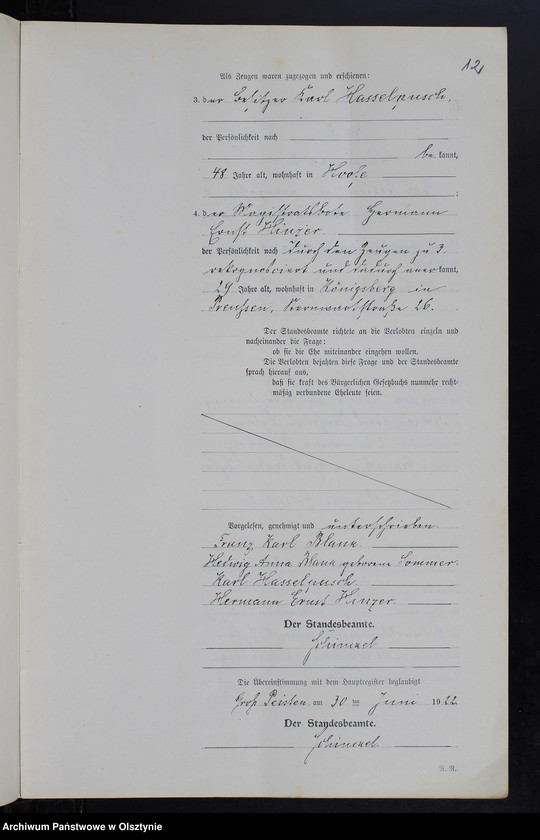 12
Als Zeugen waren zugezogen und erschienen:
3. der Besitzer Karl Hasselpusch.
der Persönlichkeit nach
be kannt,
48 Jahre alt, wohnhaft in Hoofe
;
4. der Magistratsbote Hermann
Ernst Hinzer
der Persönlichkeit nach durch den Zeugen zu 3
rekognosciert und dadurch aner kannt,
29 Jahre alt, wohnhaft in Königsberg in
Preußen, Sternwartstraße 26.
Der Standesbeamte richtete an die Verlobten einzeln und
nacheinander die Frage:
ob sie die Ehe miteinander eingehen wollen.
Die Verlobten bejahten diese Frage und der Standesbeamte
sprach hierauf aus,
daß sie kraft des Bürgerlichen Gesetzbuchs nunmehr recht-
mäßig verbundene Eheleute seien.
Vorgelesen, genehmigt und unterschrieben.
Franz Karl Blank
Hedwig Anna Blank geborene Sommer.
Karl Hasselpusch.
Hermann Ernst Hinzer.
Der Standesbeamte.
Die Übereinstimmung mit dem Hauptregister beglaubigt
Groß Peisten, am 30 ten Juni 1922
Der Standesbeamte.
Archiwum Państwowe w Olsztynie